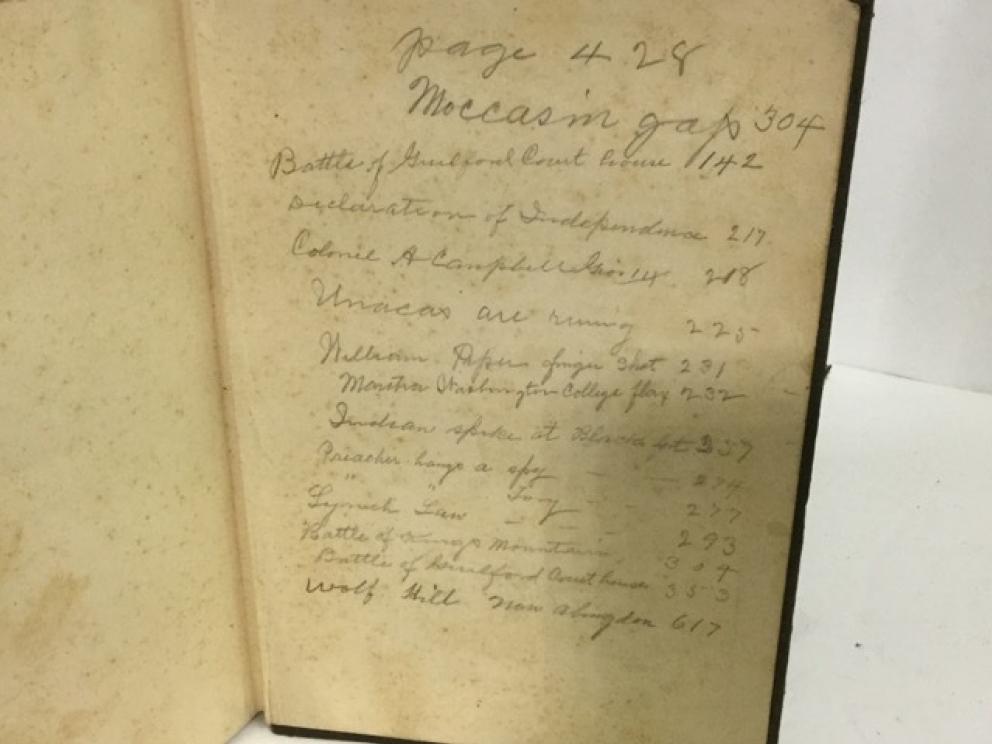 page 428
Moccasin gap 304
Battle of Guilford Court house 142
Declaration of Independence 217
Colonel A Campbell 218
Unacas are 225
William Piper finger Shot 231
Martha Washington College 232
Indian spike at Blacks fort 237
Preacher hangs a spy — — 274
" " Tory — - 277
Lynch Law — - - 293
Battle of Kings Mountain 304
Battle of Guilford Court house 353
Wolf Hill now abingdon 617